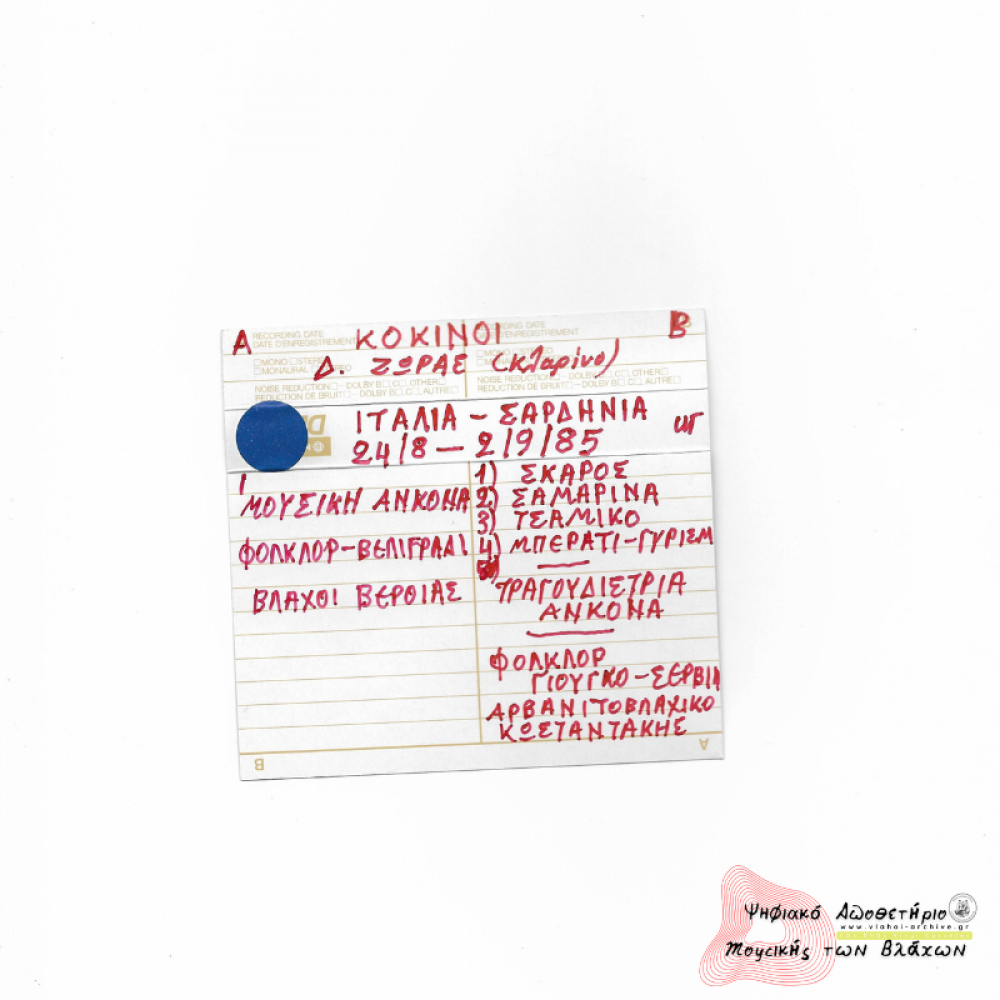 Α ΚΟΚΙΝΟΙ Β
RECORDING DATE
DATE D'ENREGISTREMENT
Δ. ΖΩΡΑΣ (Κλαρίνο)
NOISE REDUCTION □ - DOLBY B□ C□ OTHER□
REDUCTION DE BRUIT□ - DOLBY B□ C□ AUTRE□
NOISE REDUCTION□ - DOLBY B□ C□ OTHER□
REDUCTION DE BRUIT□ - DOLBY B□ C□ AUTRE□
ΙΤΑΛΙΑ - ΣΑΡΔΗΝΙΑ
24/8 - 2/9/85
ΜΟΥΣΙΚΗ ΑΝΚΟΝΑ
ΦΟΛΚΛΟΡ-ΒΕΛΙΓΡΑΔΙ
ΒΛΑΧΟΙ ΒΕΡΟΙΑΣ
1) ΣΚΑΡΟΣ
2) ΣΑΜΑΡΙΝΑ
3) ΤΣΑΜΙΚΟ
4) ΜΠΕΡΑΤΙ-ΓΥΡΙΣΜ
ΤΡΑΓΟΥΔΙΣΤΡΙΑ
ΑΝΚΟΝΑ
ΦΟΛΚΛΟΡ
ΓΙΟΥΓΚΟ-ΣΕΡΒΙΑ
ΑΡΒΑΝΙΤΟΒΛΑΧΙΚΟ
ΚΩΣΤΑΝΤΑΚΗΣ
B A
Ψηφιακό Αποθετήριο
www.vlahoi-archive.gr
Μουσικής των Βλάχων